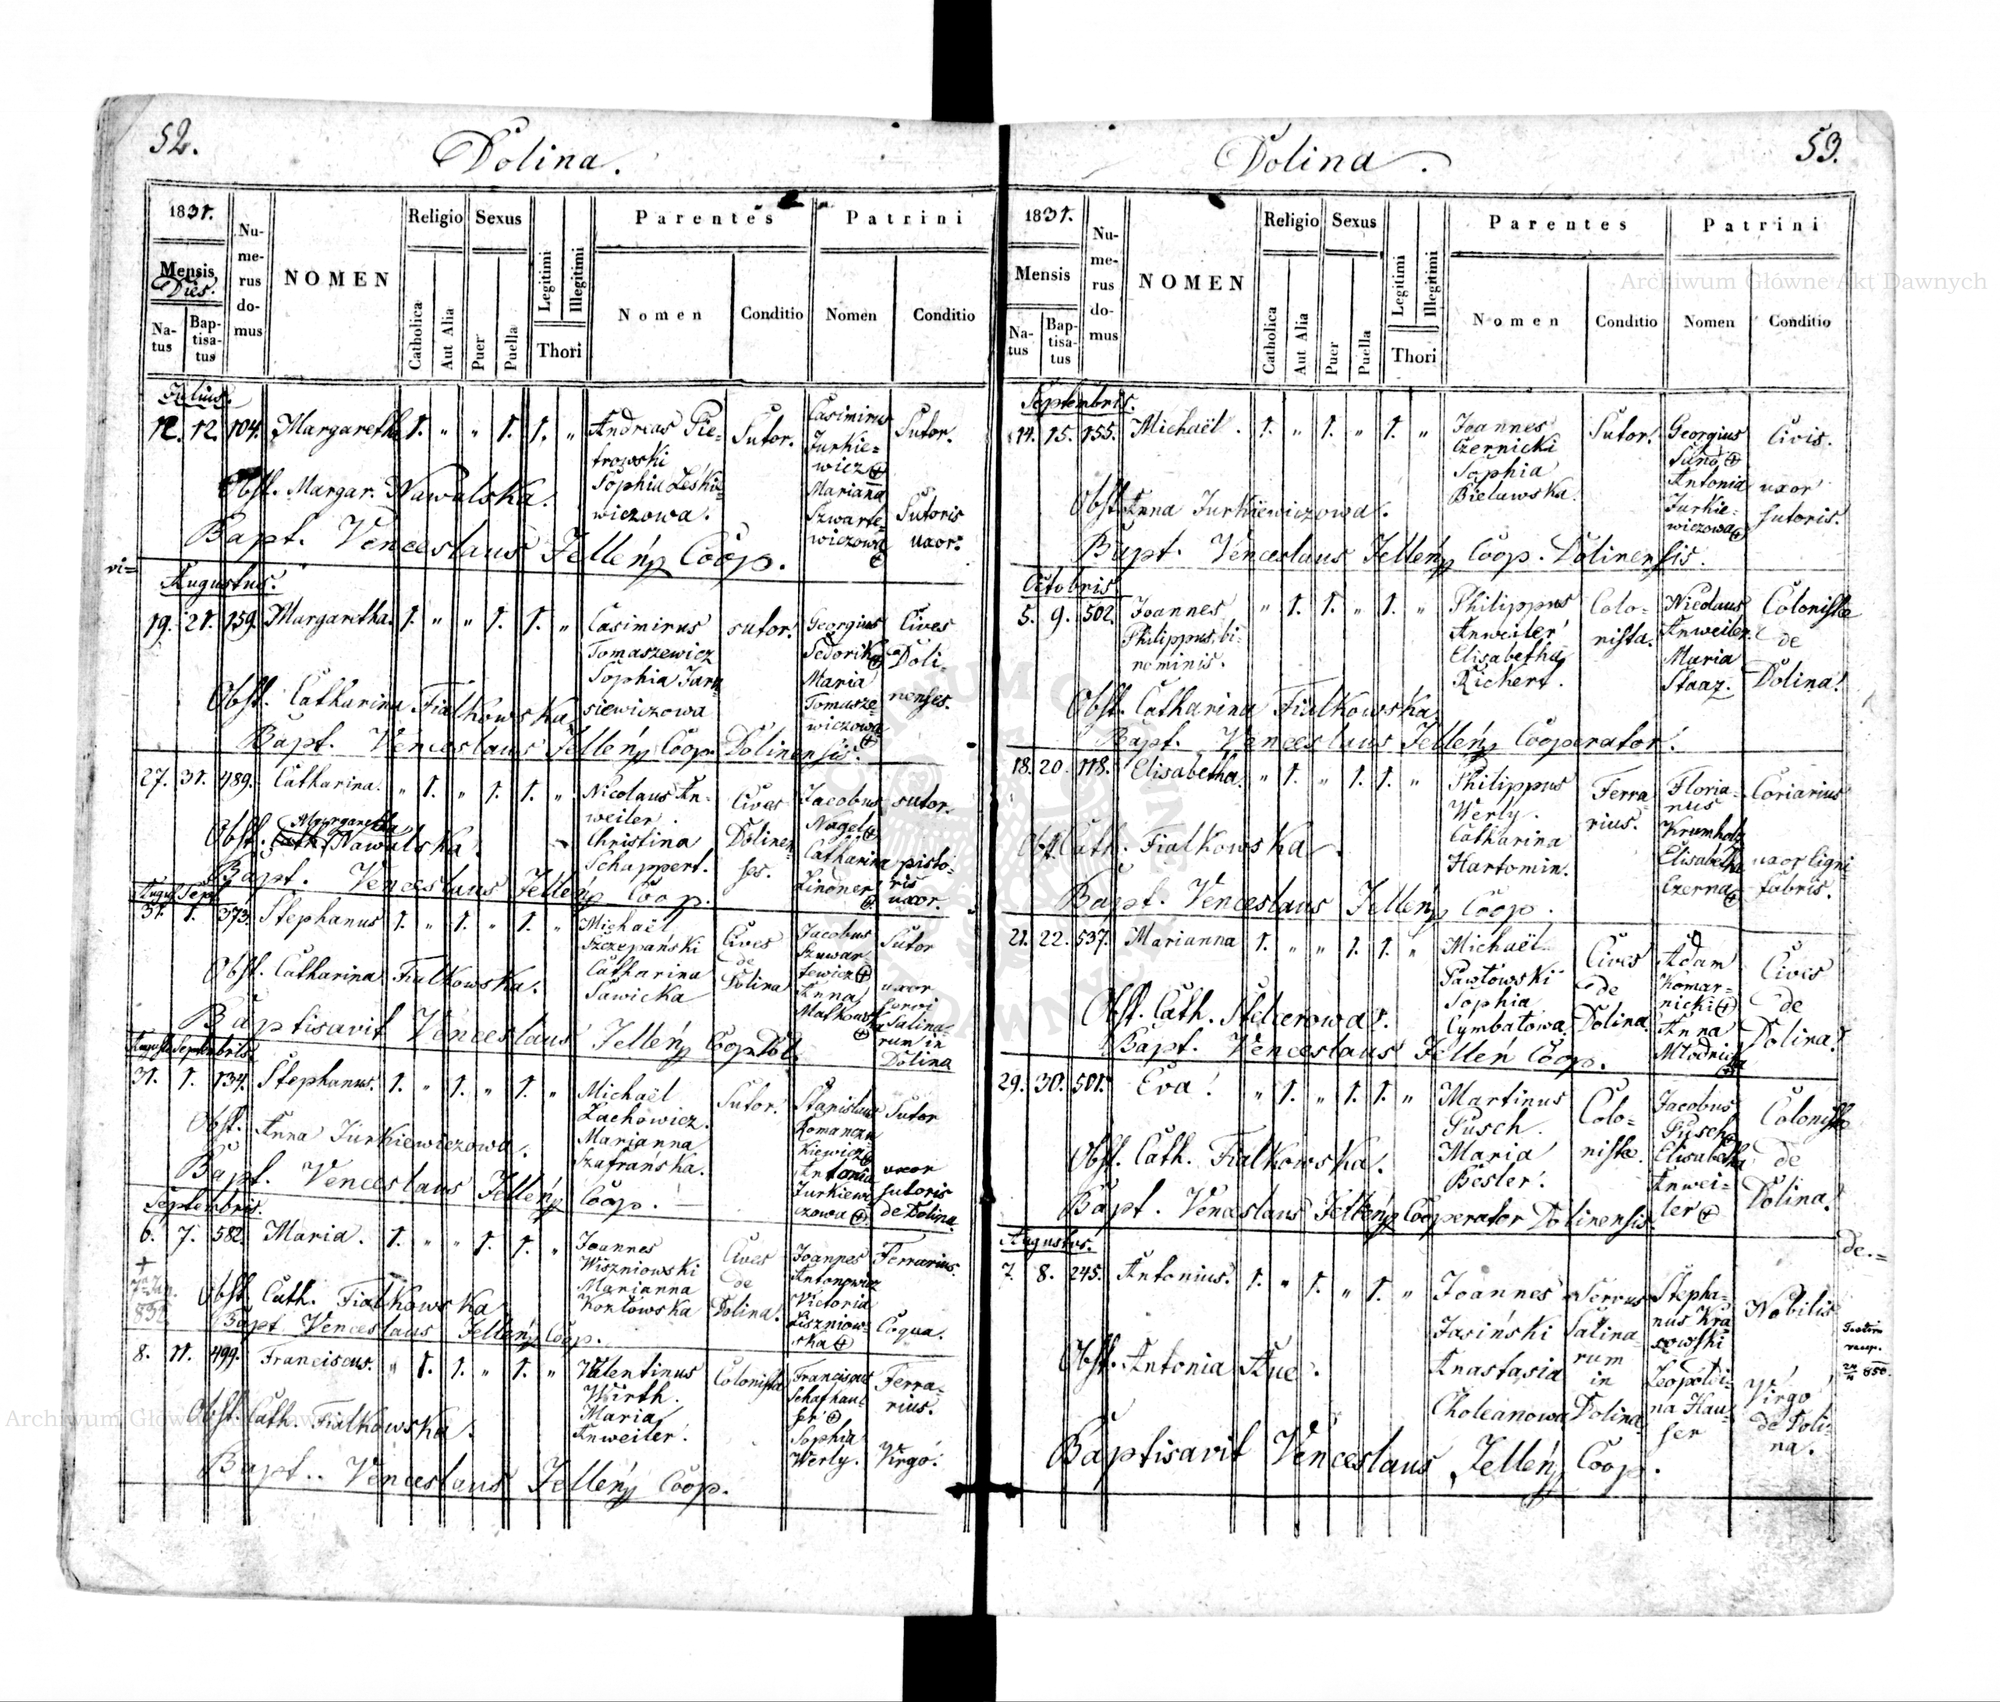 52.
Dolina.
1831.
Mensis
Dies.
Na-
tus
Bap-
tisa-
tus
Nu-
me-
rus
do-
mus
NOMEN
Religio
Catholica
Aut Alia
Sexus
Puer
Puella
Legitimi
Illegitimi
Thori
Parentes
Nomen
Conditio
Patrini
Nomen
Conditio
Julius.
12. 12. 104. Margaretha 1. " " 1. 1. "
Andreas Pie-
trowski
Sophia Leski-
wiczowa.
Sutor.
Casimirus
Jurkie-
wicz
Marianna
Szwarte-
wiczowa
Sutor.
Sutoris
uxor.
Obst. Margar. Nawalska.
Bapt. Venceslaus Jelleny Coop.
Augustus.
19. 21. 159. Margaretha. 1. " " 1. 1. "
Casimirus
Tomaszewicz
Sophia Jaru-
siewiczowa
sutor.
Georgius
Sedorik
Maria
Tomasze-
wiczowa
Cives
Doli-
nenses.
Obst. Catharina Fialkowska
Bapt. Venceslaus Jelleny Coop. Dolinensis.
27. 31. 489. Catharina. " 1. " 1. 1. "
Nicolaus An-
weiler.
Christina
Schappert.
Cives
Dolinen-
ses.
Jacobus
Nagel
Catharina
Lindner
sutor.
pisto-
ris
uxor.
Obst. Margaretha Nawalska.
Bapt. Venceslaus Jelleny Coop.
August. Sept.
31. 1. 373. Stephanus 1. " 1. " 1. "
Michaël
Szczepański
Catharina
Sawicka
Cives
de
Dolina
Jacobus
Szwar-
tewicz
Anna
Malkowska
Sutor
uxor
servi
Salina-
rum in
Dolina
Obst. Catharina Fialkowska.
Baptisavit Venceslaus Jelleny Coop. Dol.
Augusti Septembris
31. 1. 134. Stephanus. 1. " 1. " 1. "
Michaël
Zachowicz.
Marjanna
Szafrańska.
Sutor.
Stanislaus
Romanzu-
kiewicz
Antonia
Jurkiewi-
czowa
Sutor
uxor
sutoris
de Dolina
Obst. Anna Jurkiewiczowa.
Bapt. Venceslaus Jelleny Coop.
Septembris.
6. 7. 582. Maria. 1. " " 1. 1. "
Joannes
Wiszniowski
Marianna
Kozłowska
Cives
de
Dolina.
Joannes
Antonowicz
Victoria
Liszniow-
ska
Ferrarius.
Coqua.
Obst. Cath. Fialkowska
Bapt. Venceslaus Jelleny Coop.
8. 11. 499. Franciscus. " 1. 1. " 1. "
Valentinus
Wirth.
Maria
Anweiler.
Colonista
Franciscus
Schafhau-
ser
Sophia
Werly.
Ferra-
rius.
Virgo.
Obst. Cath. Fialkowska.
Bapt. Venceslaus Jelleny Coop.
53.
Dolina.
1831.
Mensis
Na-
tus
Bap-
tisa-
tus
Nu-
me-
rus
do-
mus
NOMEN
Religio
Catholica
Aut Alia
Sexus
Puer
Puella
Legitimi
Illegitimi
Thori
Parentes
Nomen
Conditio
Patrini
Nomen
Conditio
Septembris.
14. 15. 155. Michaël. 1. " 1. " 1. "
Joannes
Czernicki
Sophia
Bielawska.
Sutor.
Georgius
Antonia
Jurkie-
wiczowa
Civis.
uxor
sutoris.
Obst. Anna Jurkiewiczowa.
Bapt. Venceslaus Jelleny Coop. Dolinensis.
Octobris
5. 9. 502. Joannes " 1. 1. " 1. "
Philippus, bi-
nominis.
Philippus
Anweiler
Elisabetha
Richert.
Colo-
nista.
Nicolaus
Anweiler
Maria
Staaz.
Colonistae
de
Dolina.
Obst. Catharina Fialkowska
Bapt. Venceslaus Jelleny Cooperator.
18. 20. 118. Elisabetha. " 1. " 1. 1. "
Philippus
Werly.
Catharina
Hartomin.
Ferra-
rius.
Floria-
nus
Krumholz
Elisabetha
Czerna
Coriarius
uxor ligni
fabris.
Obst. Cath. Fialkowska.
Bapt. Venceslaus Jelleny Coop.
21. 22. 537. Marianna 1. " " 1. 1. "
Michaël
Pawłowski
Sophia
Cymbałowa
Cives
de
Dolina
Adam
Komar-
nicki
Anna
Młodnicka
Cives
de
Dolina.
Obst. Cath. Stelcerowa.
Bapt. Venceslaus Jelleny Coop.
29. 30. 501. Eva. " 1. " 1. 1. "
Martinus
Pusch.
Maria
Besler.
Colo-
nistae.
Jacobus
Pusch
Elisabetha
Anwei-
ler
Colonistae
de
Dolina.
Obst. Cath. Fialkowska.
Bapt. Venceslaus Jelleny Cooperator Dolinensis
Augustus.
7. 8. 245. Antonius. 1. " 1. " 1. "
Joannes
Jasiński
Anastasia
Choleanowa
Servus
Salina-
rum
in
Dolina.
Stepha-
nus Kra-
sowski
Leopoldi-
na Hau-
ser
Nobilis
Virgo
de Doli-
na.
Obst. Antonia Aue.
Baptisavit Venceslaus Jelleny Coop.
Archiwum Główne Akt Dawnych